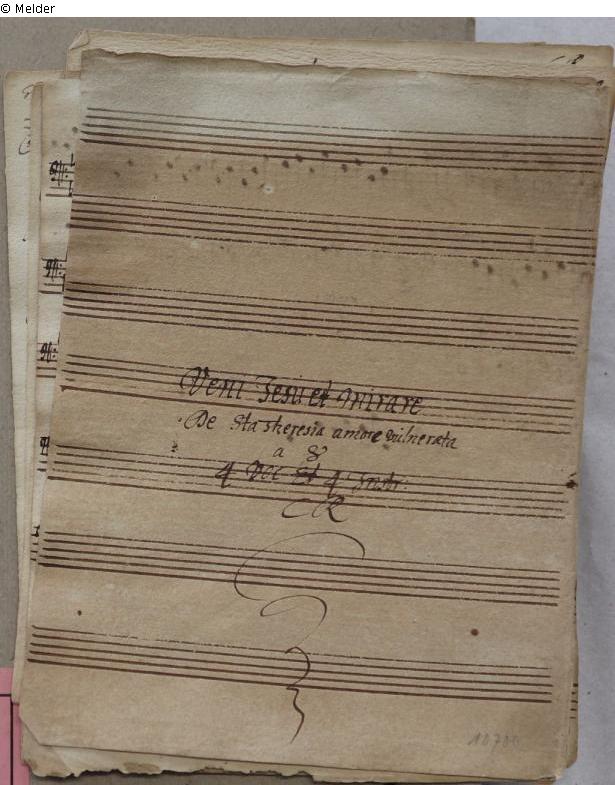 © Melder
Veni Jesu et mirare
De Sta Theresia amore vulnerata
a 8
4 Voc Et 4 Instr: